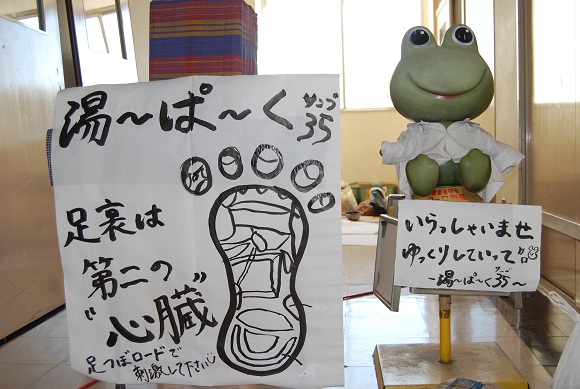 湯〜ぱ〜く35
サンゴ
足裏は
第二の
"心臓"
足つぼロードで
刺激して下さい
いらっしゃいませ
ゆっくりしていって
ケロ
サンゴ
-湯〜ぱ〜く35〜